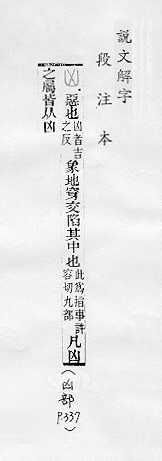 說文解字
段注本
凶．惡也凶者吉之反象地穿交陷其中也此爲指事許容切九部凡凶
之屬皆从凶
（凶部P.337）